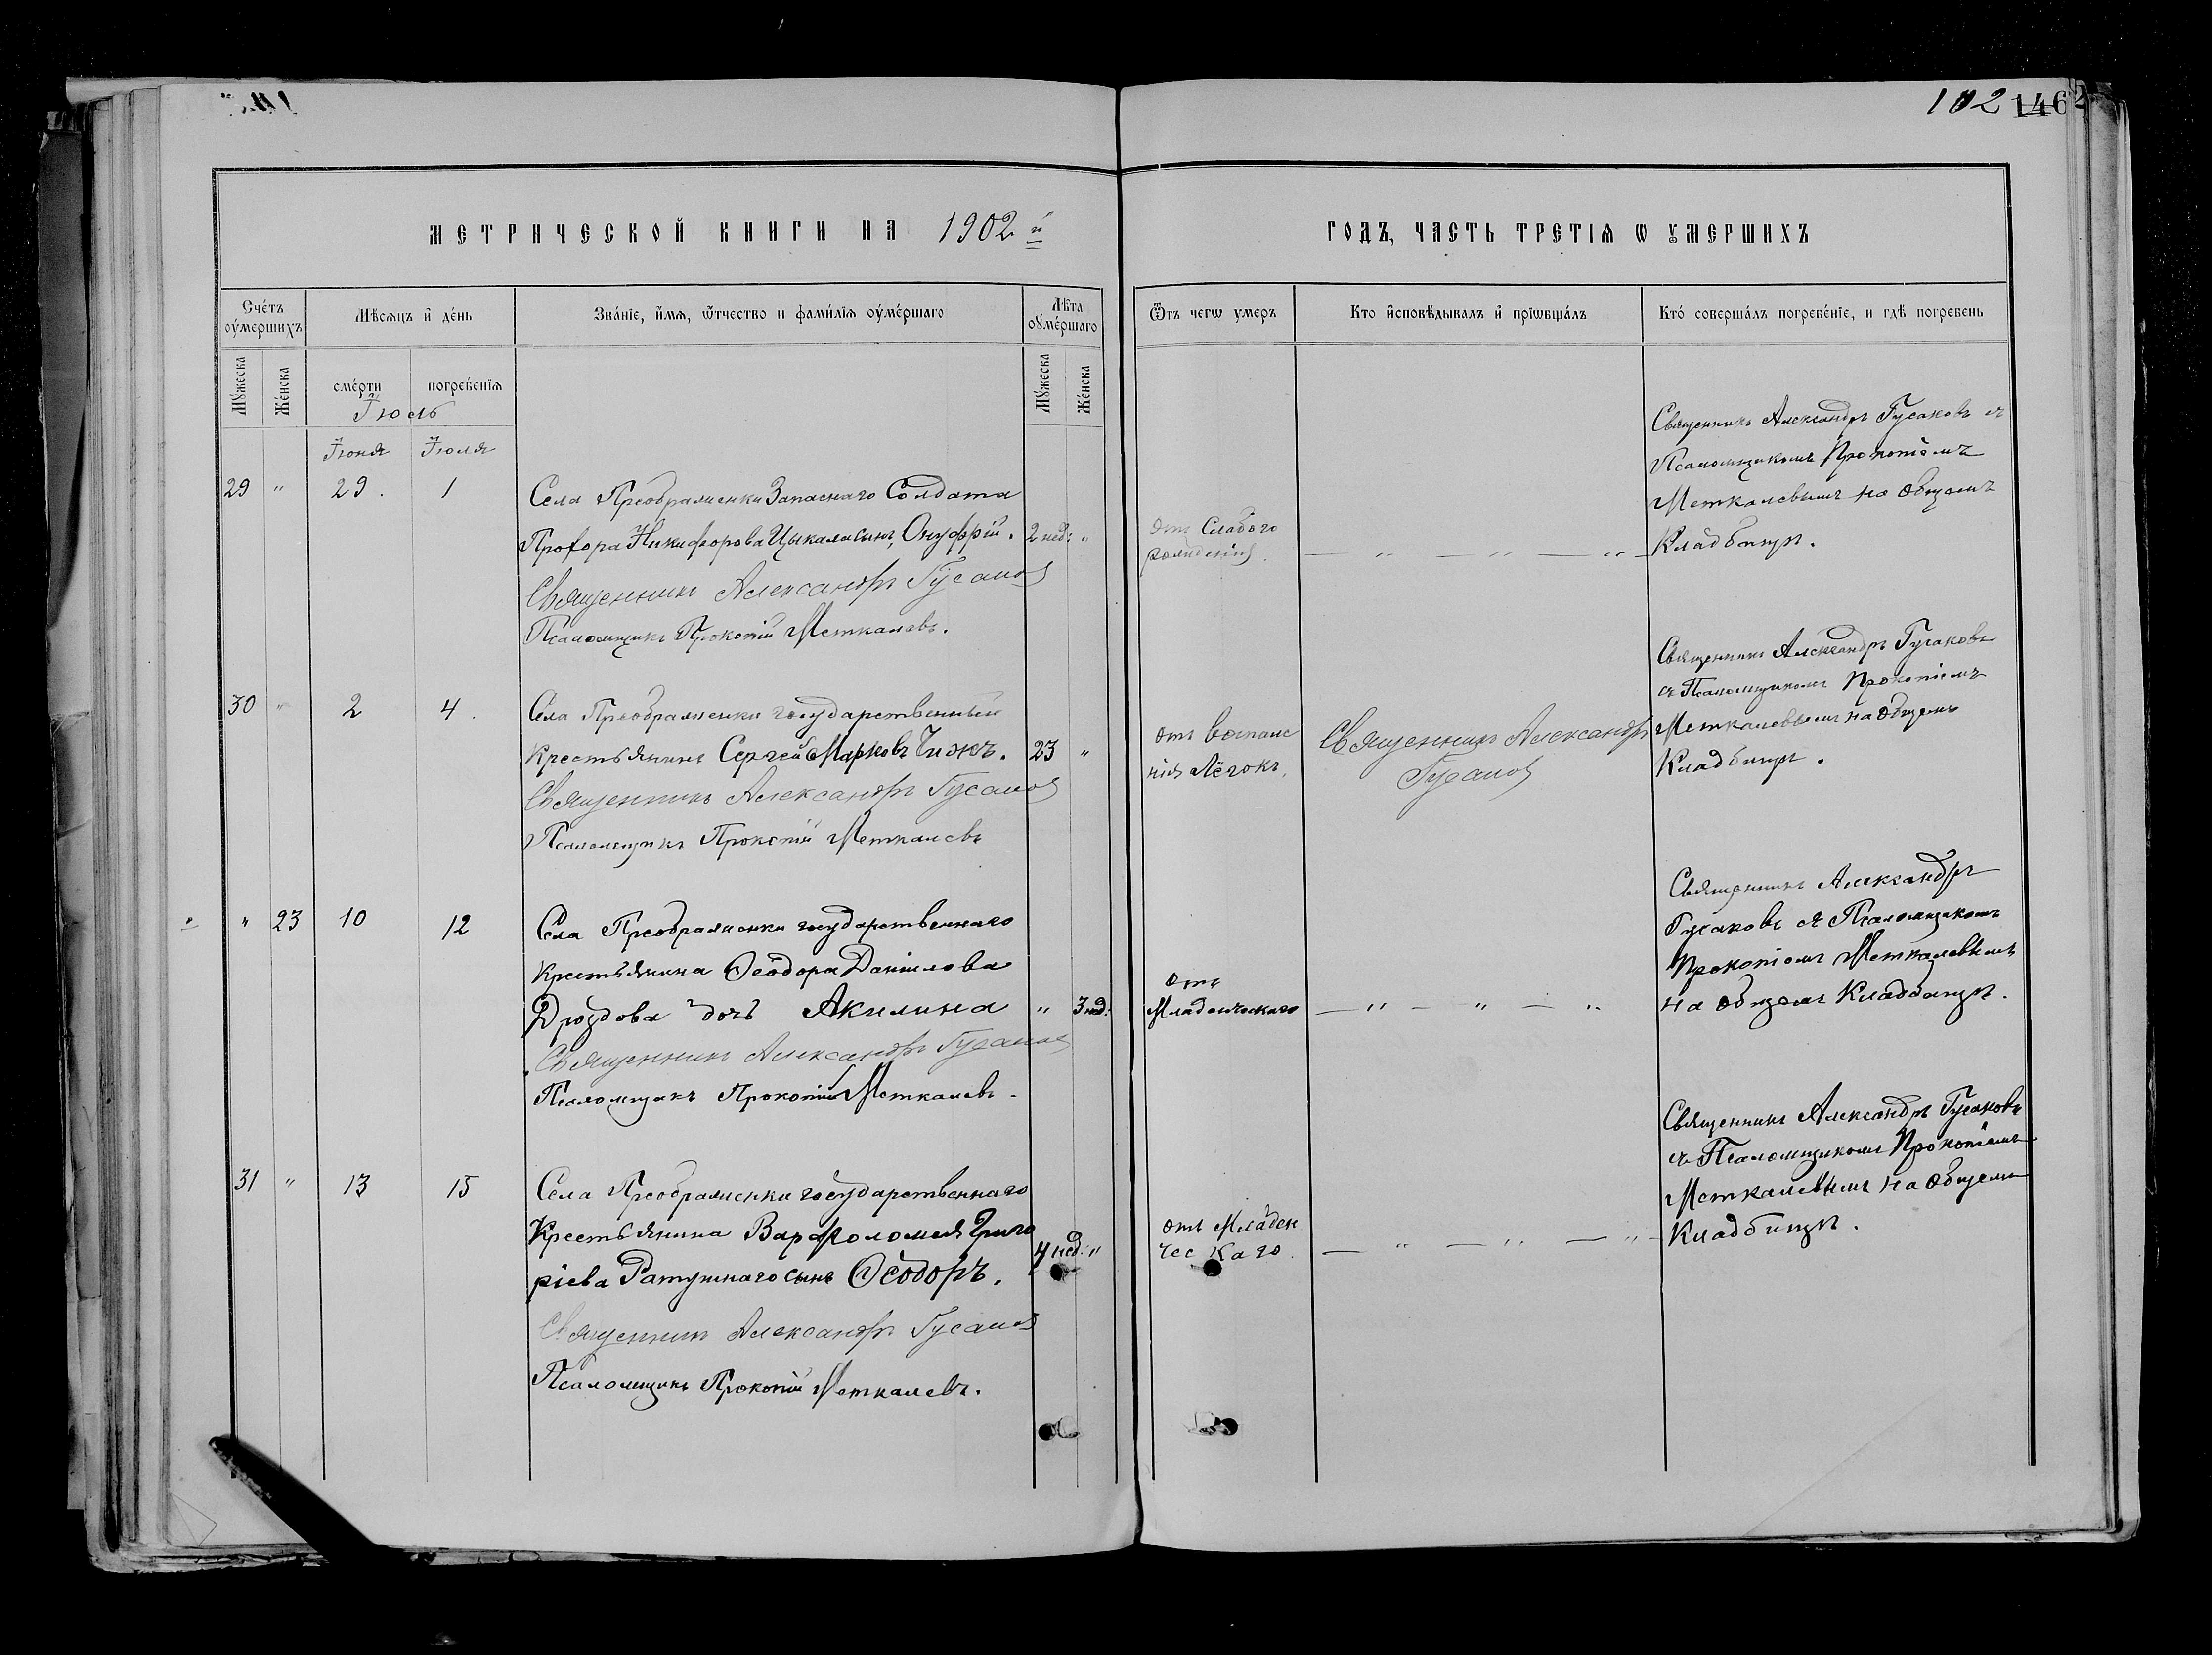 102 146
МЕТРИЧЕСКОЙ КНИГИ НА 1902й
ГОДЪ, ЧАСТЬ ТРЕТІѦ Ѡ ꙊМЕРШИХЪ
Счéтъ оу҆мершихъ
Мѣсѧцъ и҆ дéнь
Звáнїе, и҆́мѧ, ѿтчество и фами́лїѧ оу҆мéршаго
Лѣта оу҆мéршаго
Ѿ чегѡ умеръ
Кто и҆сповѣдывалъ и҆ прїѡбщáлъ
Ктó совершáлъ погребéнїе, и гдѣ погребенъ
Мꙋжеска
Жéнска
смéрти
погребенїѧ
Мꙋжеска
Жéнска
Іюль
Іюня Іюля
29 " 29. 1
Села Преображенки Запаснаго Солдата
Прохора Никифорова Цыкала сынъ, Онуфрій. 2 нед: "
Священникъ Александръ Гусаков
Псаломщикъ Прокопій Меткалевъ.
Отъ Слабого
рожденія.
— " — " — " —
Священникъ Александръ Гусаковъ съ
Псаломщикомъ Прокопіемъ
Меткалевымъ на Общемъ
Кладбищѣ.
30 " 2 4.
Села Преображенки государственный
Крестьянинъ Сергей Марковъ Чижъ. 23 "
Священникъ Александръ Гусаков
Псаломщикъ Прокопій Меткалевъ
отъ воспале
нія Лёгокъ.
Священникъ Александръ
Гусаков
Священникъ Александръ Гусаковъ
съ Псаломщикомъ Прокопіемъ
Меткалевымъ на Общемъ
Кладбищѣ.
" 23 10 12
Села Преображенки государственнаго
Крестьянина Ѳеодора Даніилова
Дроздова дочь Акилина " 3 нед:
Священникъ Александръ Гусаков
Псаломщикъ Прокопій Меткалевъ.
отъ
Младенческаго
— " — " — "
Священникъ Александръ
Гусаковъ съ Псаломщикомъ
Прокопіемъ Меткалевымъ
на Общемъ Кладбищѣ.
31 " 13 15
Села Преображенки государственнаго
Крестьянина Варфоломея Григо
ріева Ратушнаго сынъ Ѳеодоръ. 4 нед: "
Священникъ Александръ Гусаков
Псаломщикъ Прокопій Меткалевъ.
отъ Младен
ческаго.
— " — " — " —
Священникъ Александръ Гусаковъ
съ Псаломщикомъ Прокопіемъ
Меткалевымъ на Общемъ
Кладбищѣ.